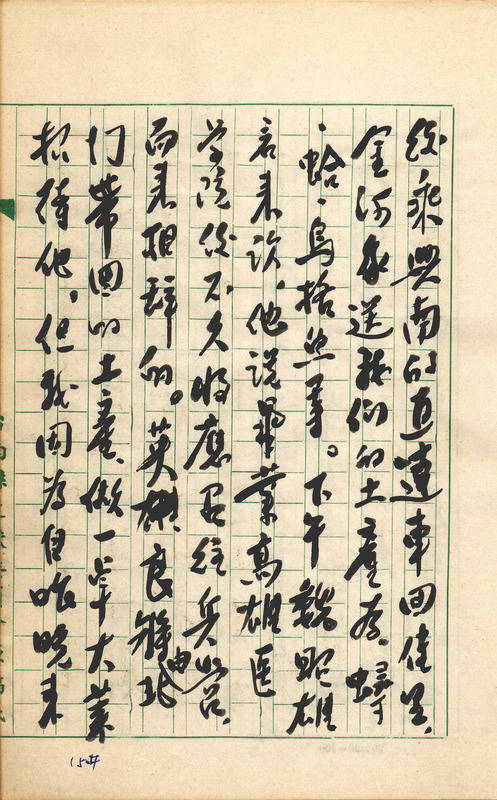 後乘興南的直達車回佳里,
金河家送我們的土產有:蟳
、蛤、烏格魚等。下午魏昭雄
君來訪,他說畢業高雄醫
學院後不久將應召往兵營,
而來相辭的。英、良雅由北
門帶回的土產,做一桌大菜
招待他,但我因為自昨晚來